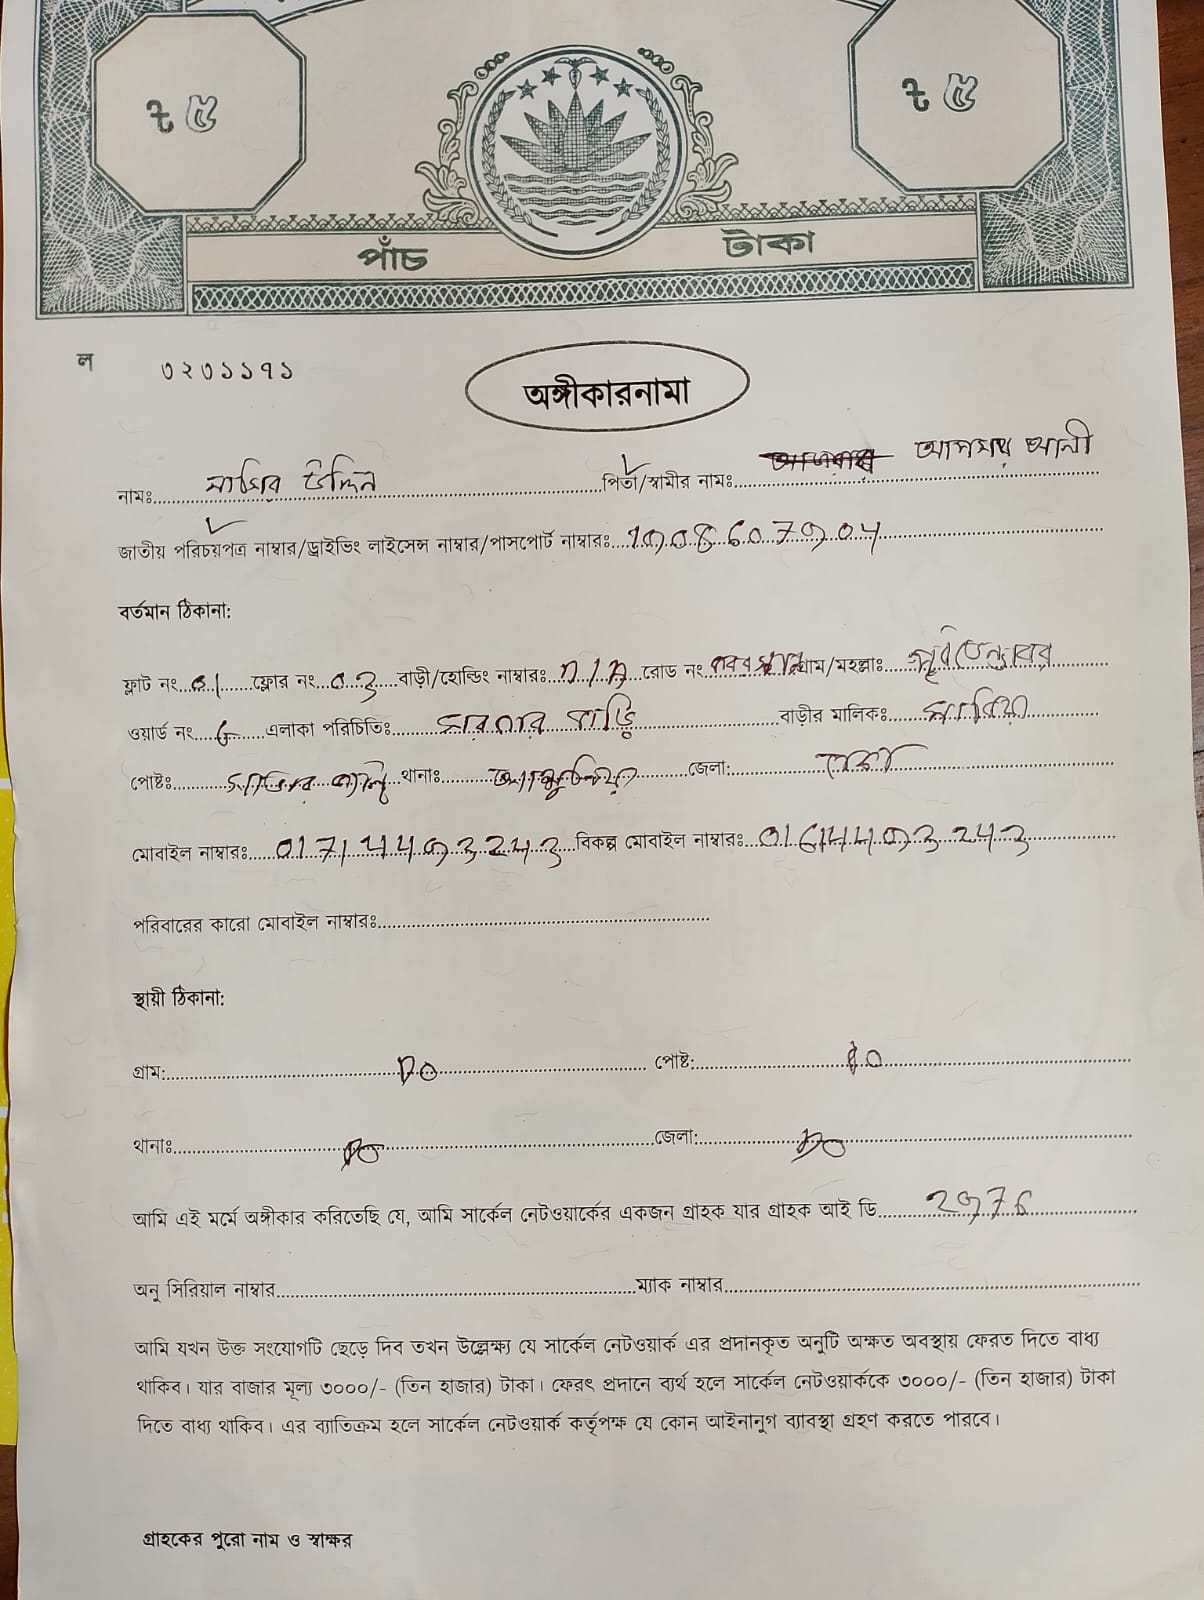 ৳ ৫ ৳ ৫
পাঁচ টাকা
ল ৩২৩১১৭১
অঙ্গীকারনামা
নামঃ নাছির উদ্দিন পিতা/স্বামীর নামঃ আলী
জাতীয় পরিচয়পত্র নাম্বার/ড্রাইভিং লাইসেন্স নাম্বার/পাসপোর্ট নাম্বারঃ
বর্তমান ঠিকানা:
ফ্লাট নং ফ্লোর নং বাড়ী/হোল্ডিং নাম্বারঃ N/A রোড নং গ্রাম/মহল্লাঃ
ওয়ার্ড নং এলাকা পরিচিতিঃ সরকার বাড়ি বাড়ীর মালিকঃ
পোষ্টঃ থানাঃ আশুলিয়া জেলা: ঢাকা
মোবাইল নাম্বারঃ বিকল্প মোবাইল নাম্বারঃ
পরিবারের কারো মোবাইল নাম্বারঃ
স্থায়ী ঠিকানা:
গ্রাম: Do পোষ্ট: Do
থানাঃ Do জেলা: Do
আমি এই মর্মে অঙ্গীকার করিতেছি যে, আমি সার্কেল নেটওয়ার্কের একজন গ্রাহক যার গ্রাহক আই ডি 2976
অনু সিরিয়াল নাম্বার ম্যাক নাম্বার
আমি যখন উক্ত সংযোগটি ছেড়ে দিব তখন উল্লেক্ষ্য যে সার্কেল নেটওয়ার্ক এর প্রদানকৃত অনুটি অক্ষত অবস্থায় ফেরত দিতে বাধ্য
থাকিব। যার বাজার মূল্য ৩০০০/- (তিন হাজার) টাকা। ফেরৎ প্রদানে ব্যর্থ হলে সার্কেল নেটওয়ার্ককে ৩০০০/- (তিন হাজার) টাকা
দিতে বাধ্য থাকিব। এর ব্যাতিক্রম হলে সার্কেল নেটওয়ার্ক কর্তৃপক্ষ যে কোন আইনানুগ ব্যাবস্থা গ্রহণ করতে পারবে।
গ্রাহকের পুরো নাম ও স্বাক্ষর